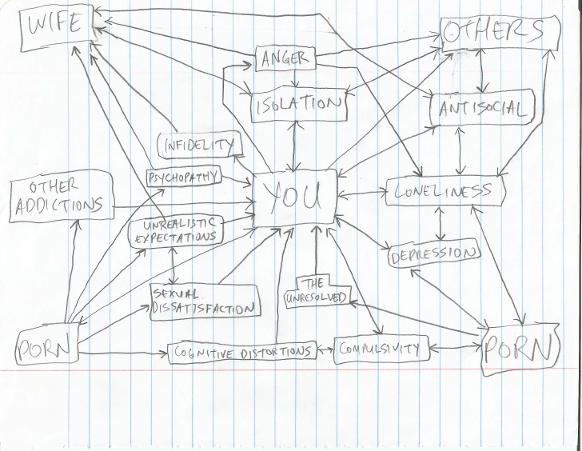 WIFE
OTHERS
ANGER
ISOLATION
ANTISOCIAL
INFIDELITY
PSYCHOPATHY
OTHER
ADDICTIONS
YOU
LONELINESS
UNREALISTIC
EXPECTATIONS
DEPRESSION
SEXUAL
DISSATISFACTION
THE
UNRESOLVED
PORN
COGNITIVE DISTORTIONS
COMPULSIVITY
PORN